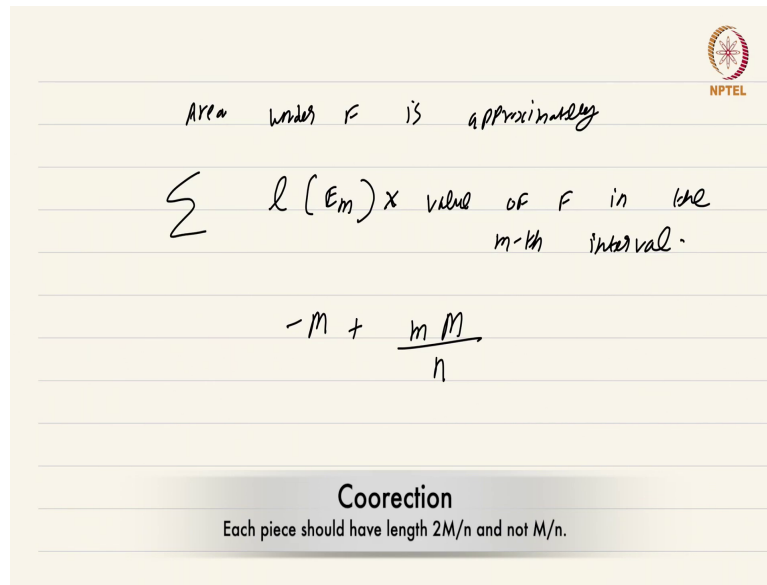 NPTEL
Area under F is approximately
∑ l(Em) x value of F in the
m-th interval.
-M + mM/n
Coorection
Each piece should have length 2M/n and not M/n.